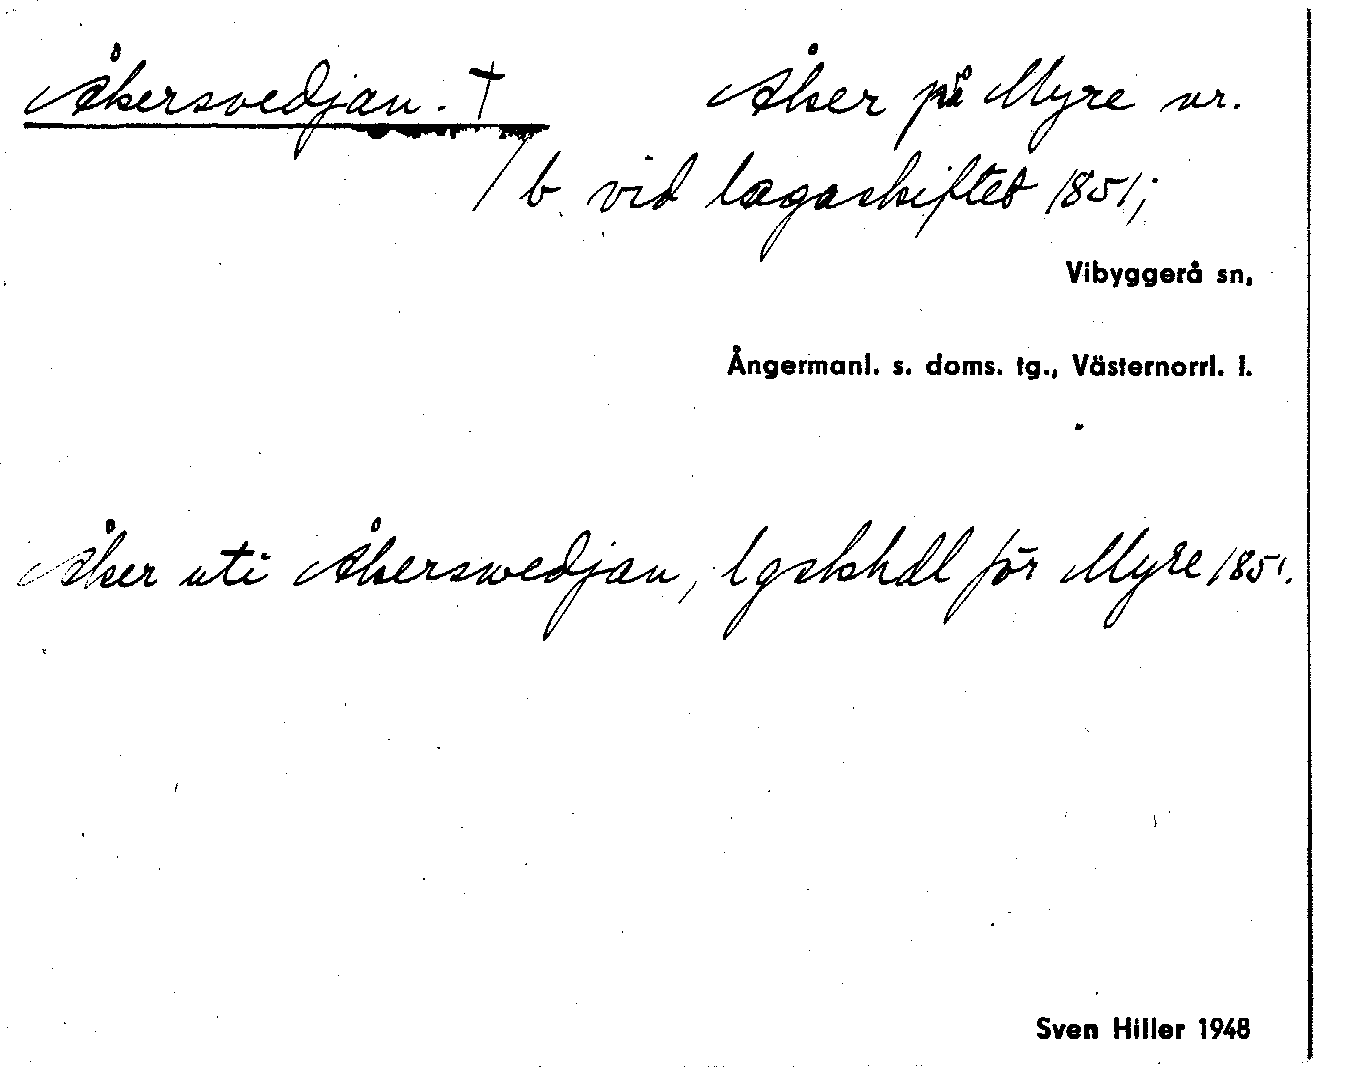 Åkersvedjan. † Åker på Myre nr.
1 b. vid lagaskiftet 1851;
Vibyggerå sn,
Ångermanl. s. doms. tg., Västernorrl. l.
Åker uti Åkerswedjan, lgskhdl för Myre 1851.
Sven Hiller 1948